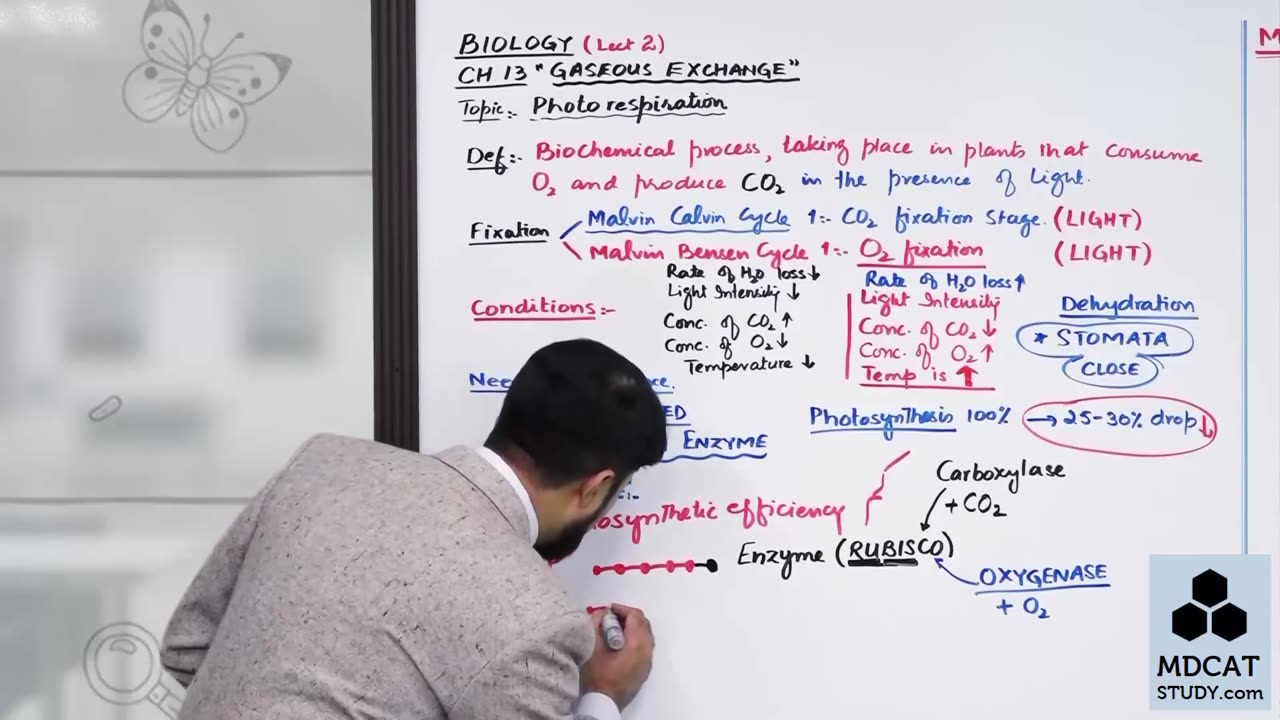 BIOLOGY (Lect 2)
CH 13 "GASEOUS EXCHANGE"
Topic:- Photorespiration
Def:- Biochemical process, taking place in plants that consume
O2 and produce CO2 in the presence of Light.
Fixation
Malvin Calvin Cycle 1:- CO2 fixation Stage. (LIGHT)
Malvin Bensen Cycle 1:- O2 fixation (LIGHT)
Conditions:-
Rate of H2O loss ↓
Light Intensity ↓
Conc. of CO2 ↑
Conc. of O2 ↓
Temperature ↓
Rate of H2O loss ↑
Light Intensity
Conc. of CO2 ↓
Conc. of O2 ↑
Temp is ↑
Dehydration
* STOMATA
CLOSE
ENZYME
Photosynthesis 100% → 25-30% drop ↓
efficiency
Carboxylase
+ CO2
Enzyme (RUBISCO)
OXYGENASE
+ O2
M
MDCAT
STUDY.com